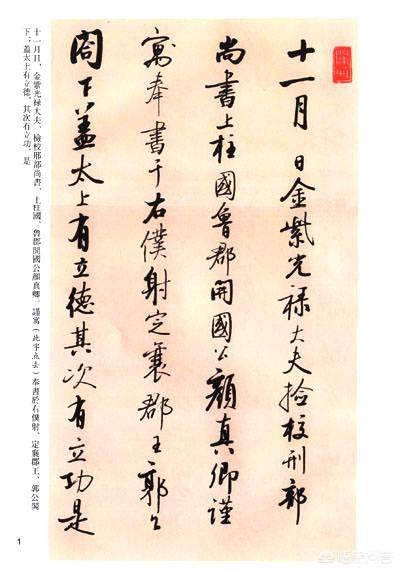 十一月 日金紫光禄大夫捡校刑部
尚書上柱國魯郡開國公顏真卿謹
寓奉書于右僕射定襄郡王郭公
閤下蓋太上有立德其次有立功是
十一月日，金紫光禄大夫、檢校刑部尚書、上柱國、魯郡開國公顏真卿，謹寓（此字点去）奉書於右僕射、定襄郡王、郭公閣
下：蓋太上有立德，其次有立功，是
1
悟空问答